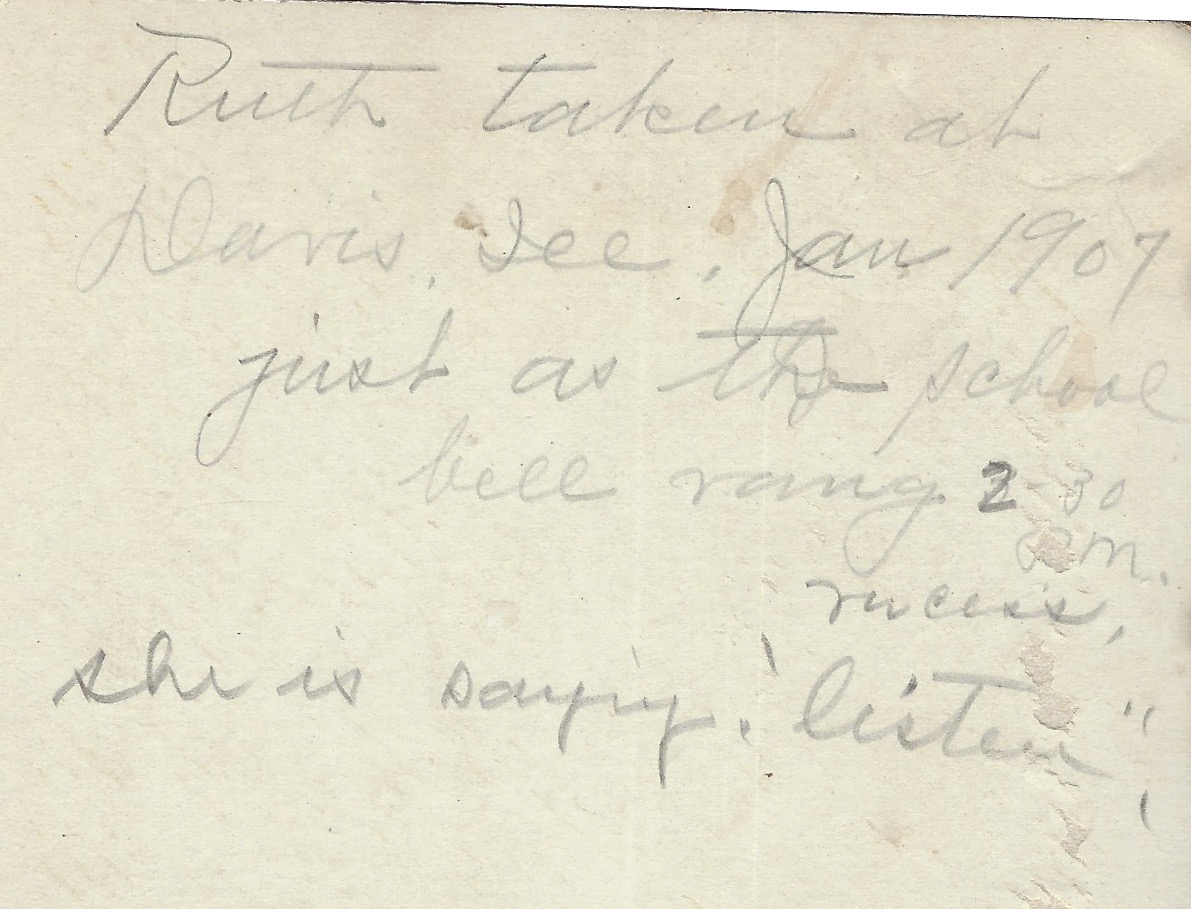 Ruth taken at
Davis, Ill, Jan 1907
just as the school
bell rang 2-30
P.M.
recess,
she is saying, "listen",